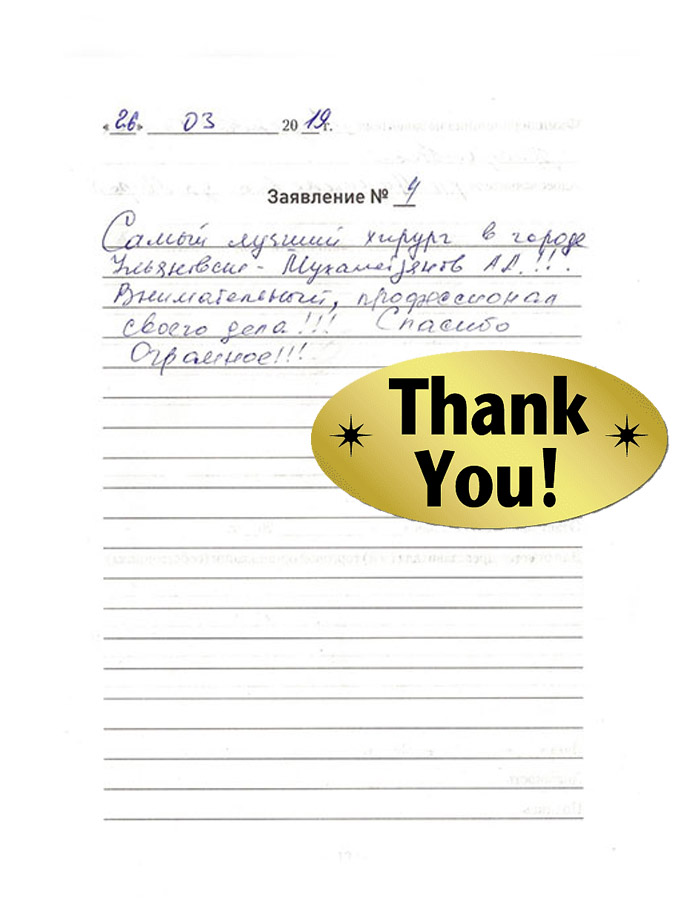 «26» 03 2019 г.
Заявление № 4
Самый лучший хирург в городе
Ульяновске - Мухаметзянов А.А.!!.
Внимательный, профессионал
своего дела!!! Спасибо
Огромное!!!
Thank
You!